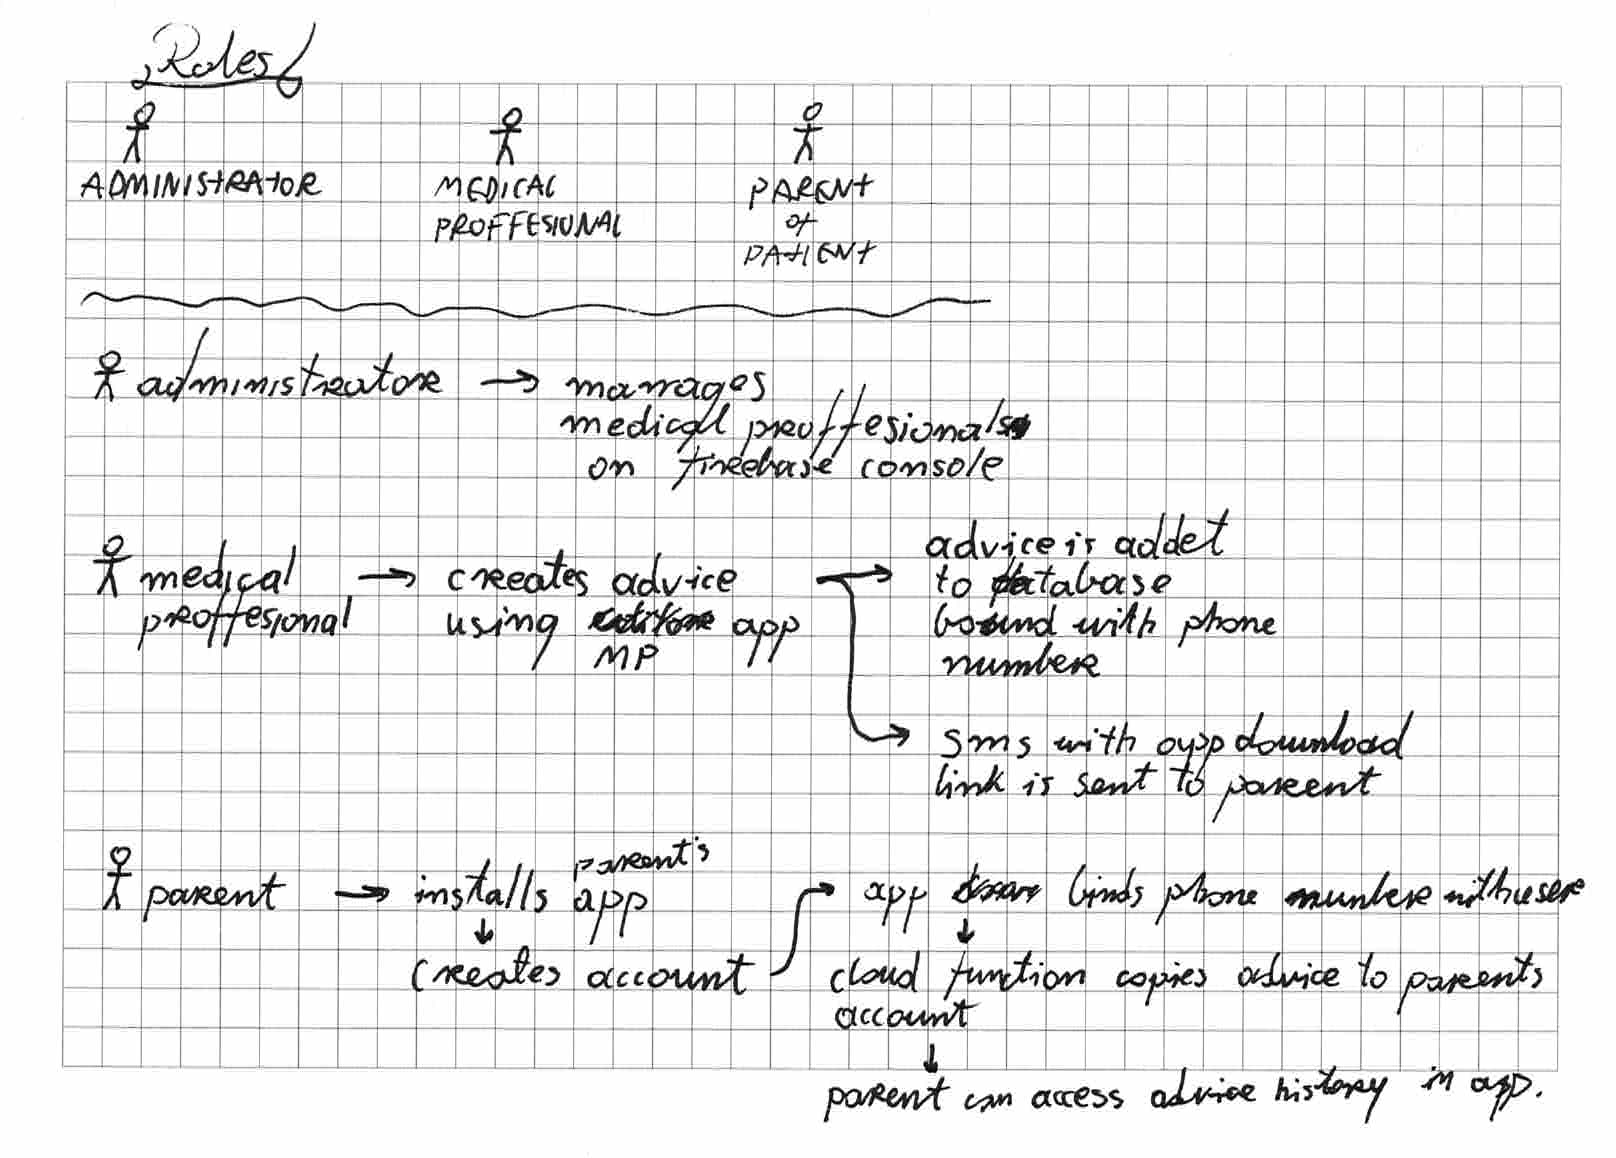 Roles
ADMINISTRATOR
MEDICAL
PROFFESIONAL
PARENT
of
PATIENT
administrator → manages
medical proffesionals
on firebase console
medical
proffesional
→ creates advice
using app
MP
advice is addet
to database
bound with phone
number
sms with app download
link is sent to parent
parent → installs parent's
app
↓
creates account
→ app binds phone number with user
↓
cloud function copies advice to parents
account
↓
parent can access advice history in app.